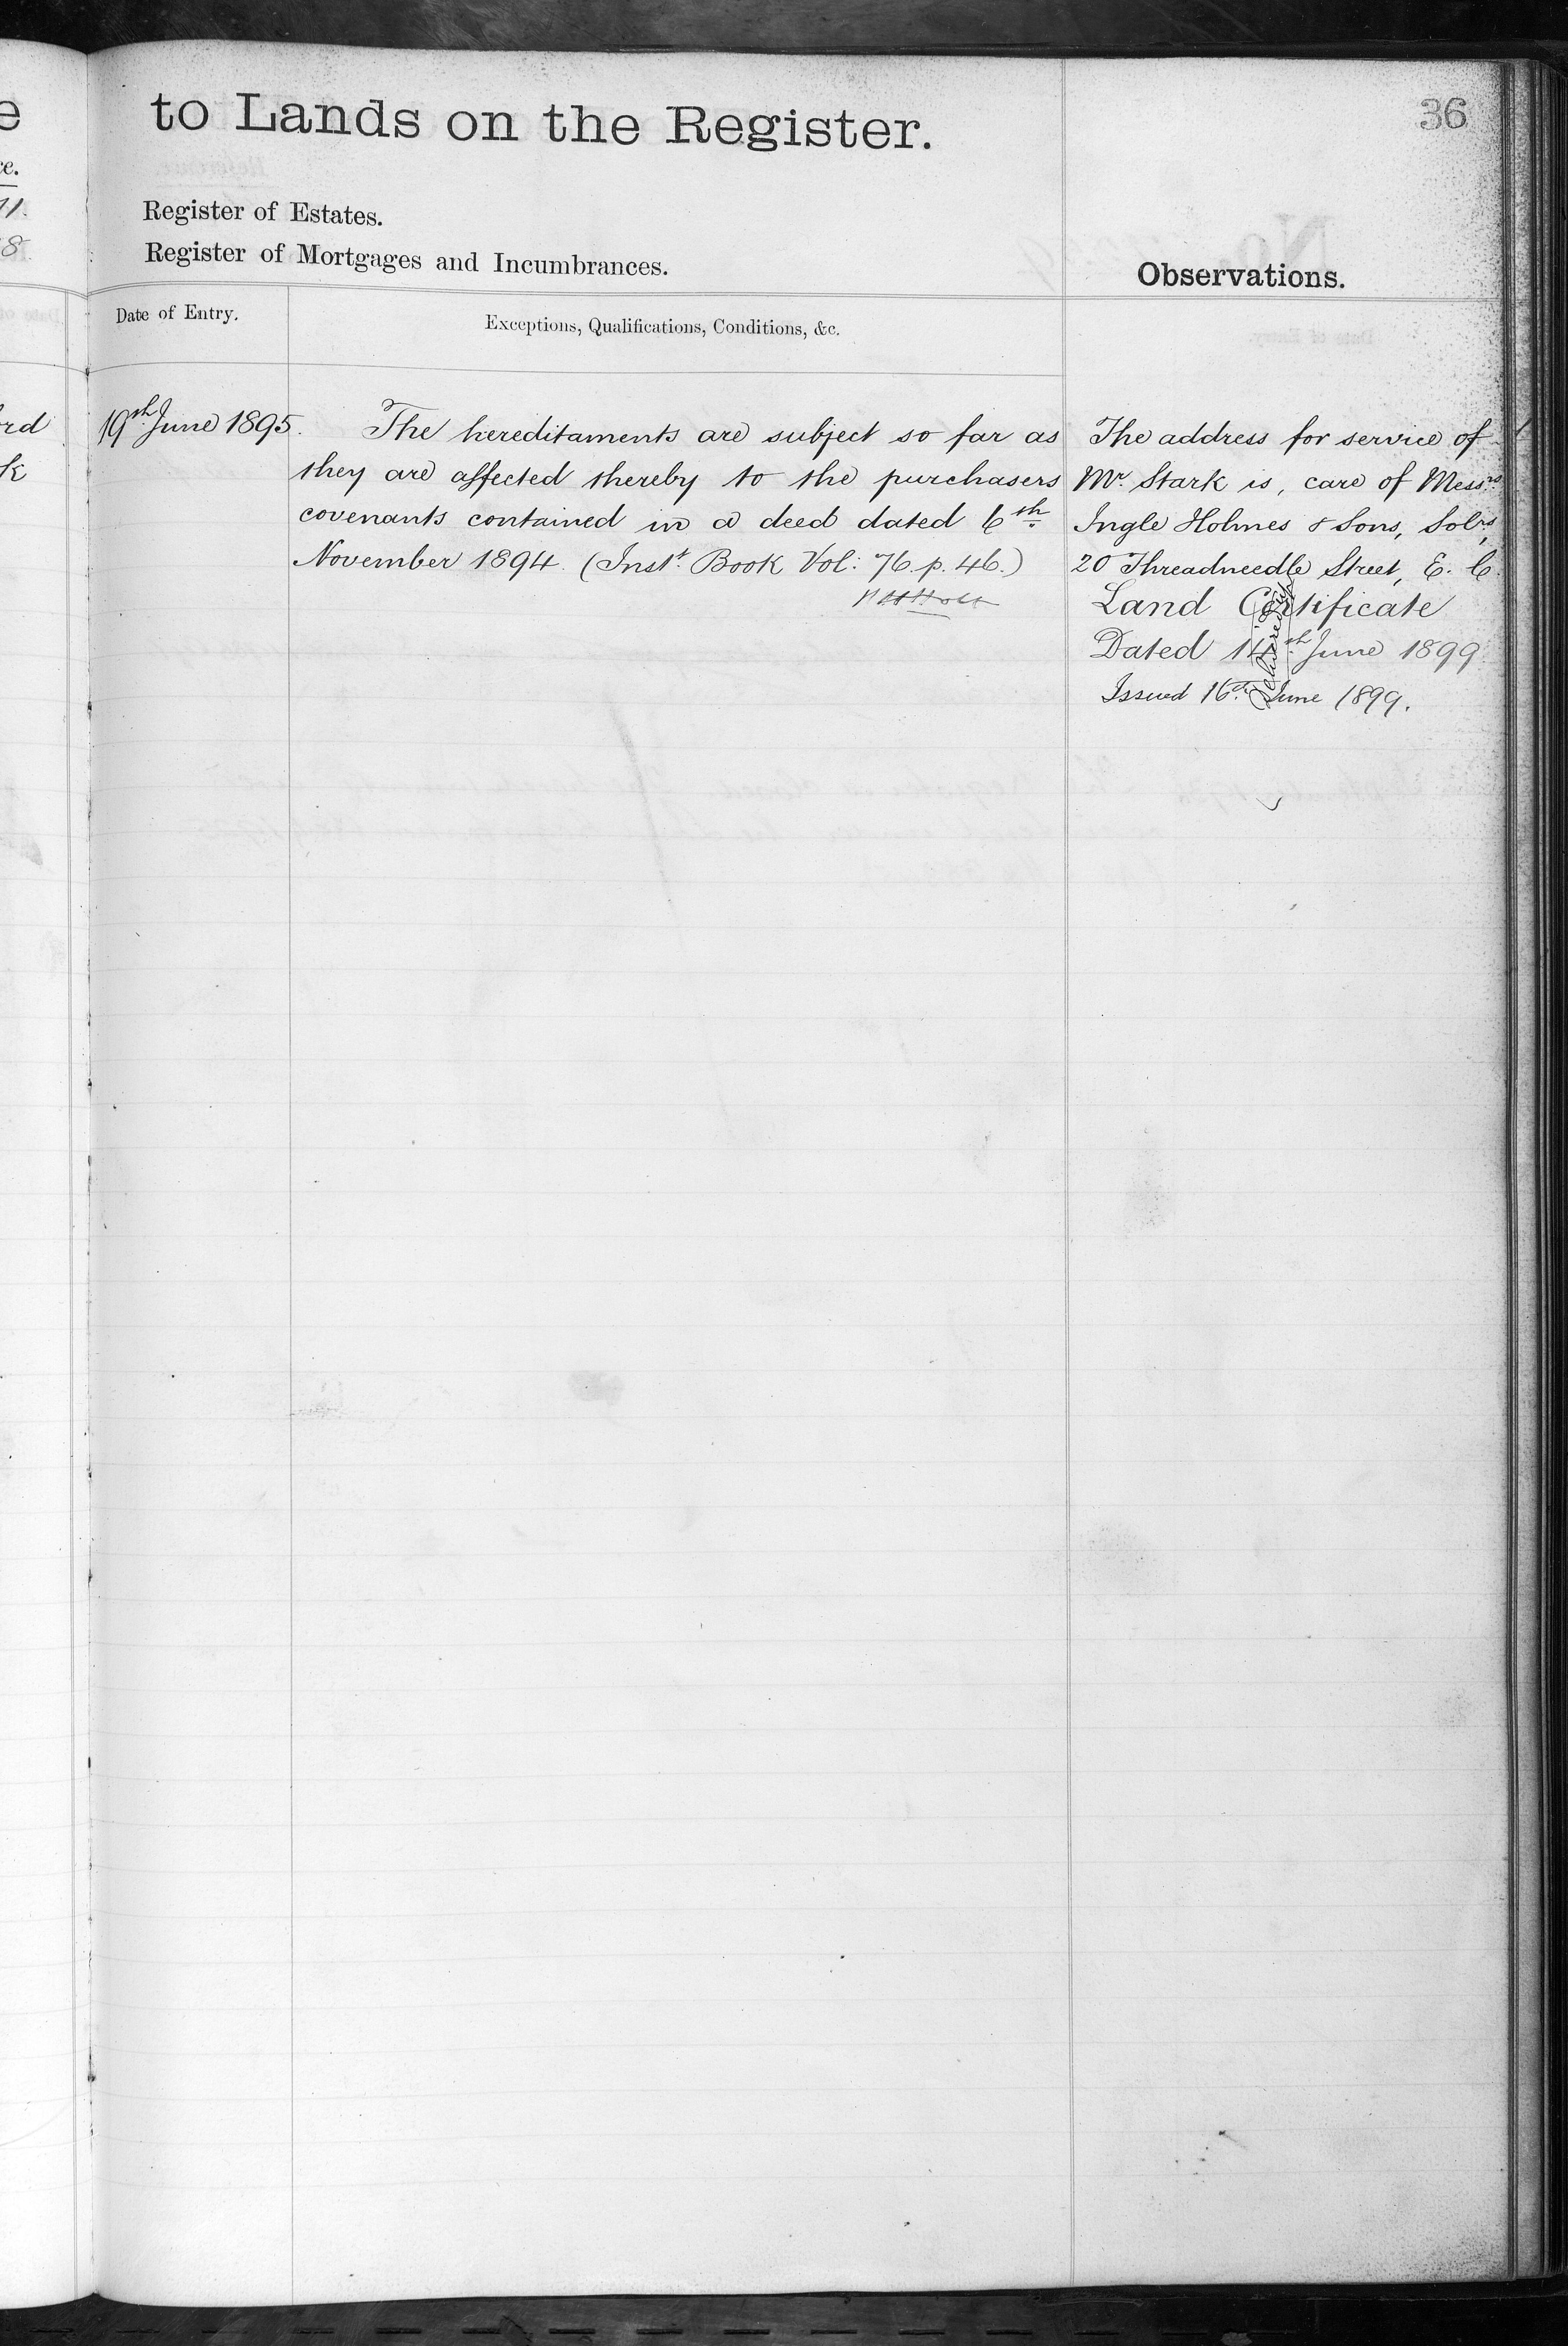 to Lands on the Register.
36
Register of Estates.
Register of Mortgages and Incumbrances.
Observations.
Date of Entry.
Exceptions, Qualifications, Conditions, &c.
19th June 1895.
The hereditaments are subject so far as
they are affected thereby to the purchasers
covenants contained in a deed dated 6th
November 1894. (Inst. Book Vol: 76. p. 46.)
The address for service of
Mr. Stark is, care of Messrs
Ingle Holmes & Sons, Solrs,
20 Threadneedle Street, E. C.
Land Certificate
Dated 14th June 1899
Issued 16th June 1899.
e
ce.
71.
8.
ord
k